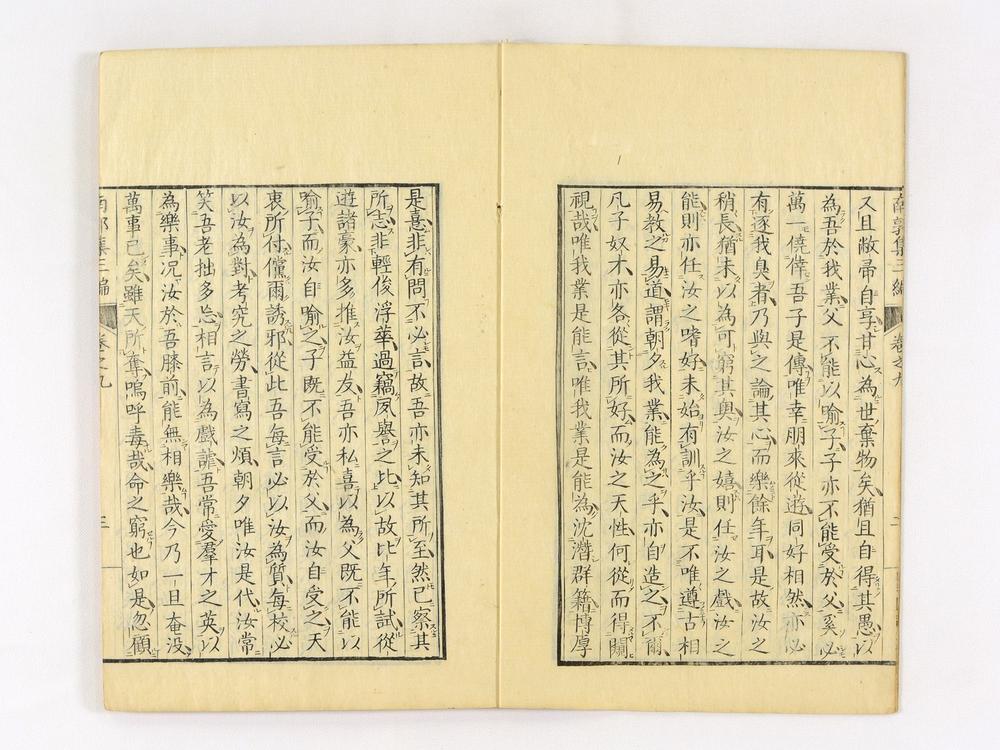 南郭集三編 卷之九
又且敝帚自享甘心爲世棄物矣猶且自得其愚以
為吾於我業父不能以喻子子亦不能受於父奚必
萬一僥倖吾子是傳唯幸朋來從遊同好相然亦必
有逐我臭者乃與之論其心而樂餘年耳是故汝之
稍長猶未以為可窮其奥汝之嬉則任汝之戲汝之
能則亦任汝之嗜好未始有訓乎汝是不唯遵古相
易教之易道謂朝夕我業能為之乎亦自造之不爾
凡子奴才亦各從其所好而汝之天性何從而得闚
視哉唯我業是能言唯我業是能為沈潛群籍博厚
是憙非有問不必言故吾亦未知其所至然已察其
所志非輕俊浮華過竊夙譽之比以故比年所試從
遊諸豪亦多推汝益友吾亦私喜以為父既不能以
喻子而汝自喻之子既不能受於父而汝自受之天
衷所付儻爾誘邪從此吾每言必以汝為質每校必
以汝為對考究之勞書寫之煩朝夕唯汝是代汝常
笑吾老拙多忘相言以為戲謔吾常愛羣才之英以
為樂事况汝於吾膝前能無相樂哉今乃一旦奄没
萬事已矣雖天所奪嗚呼毒哉命之窮也如是忽顧
南郭集三編 卷之九 三